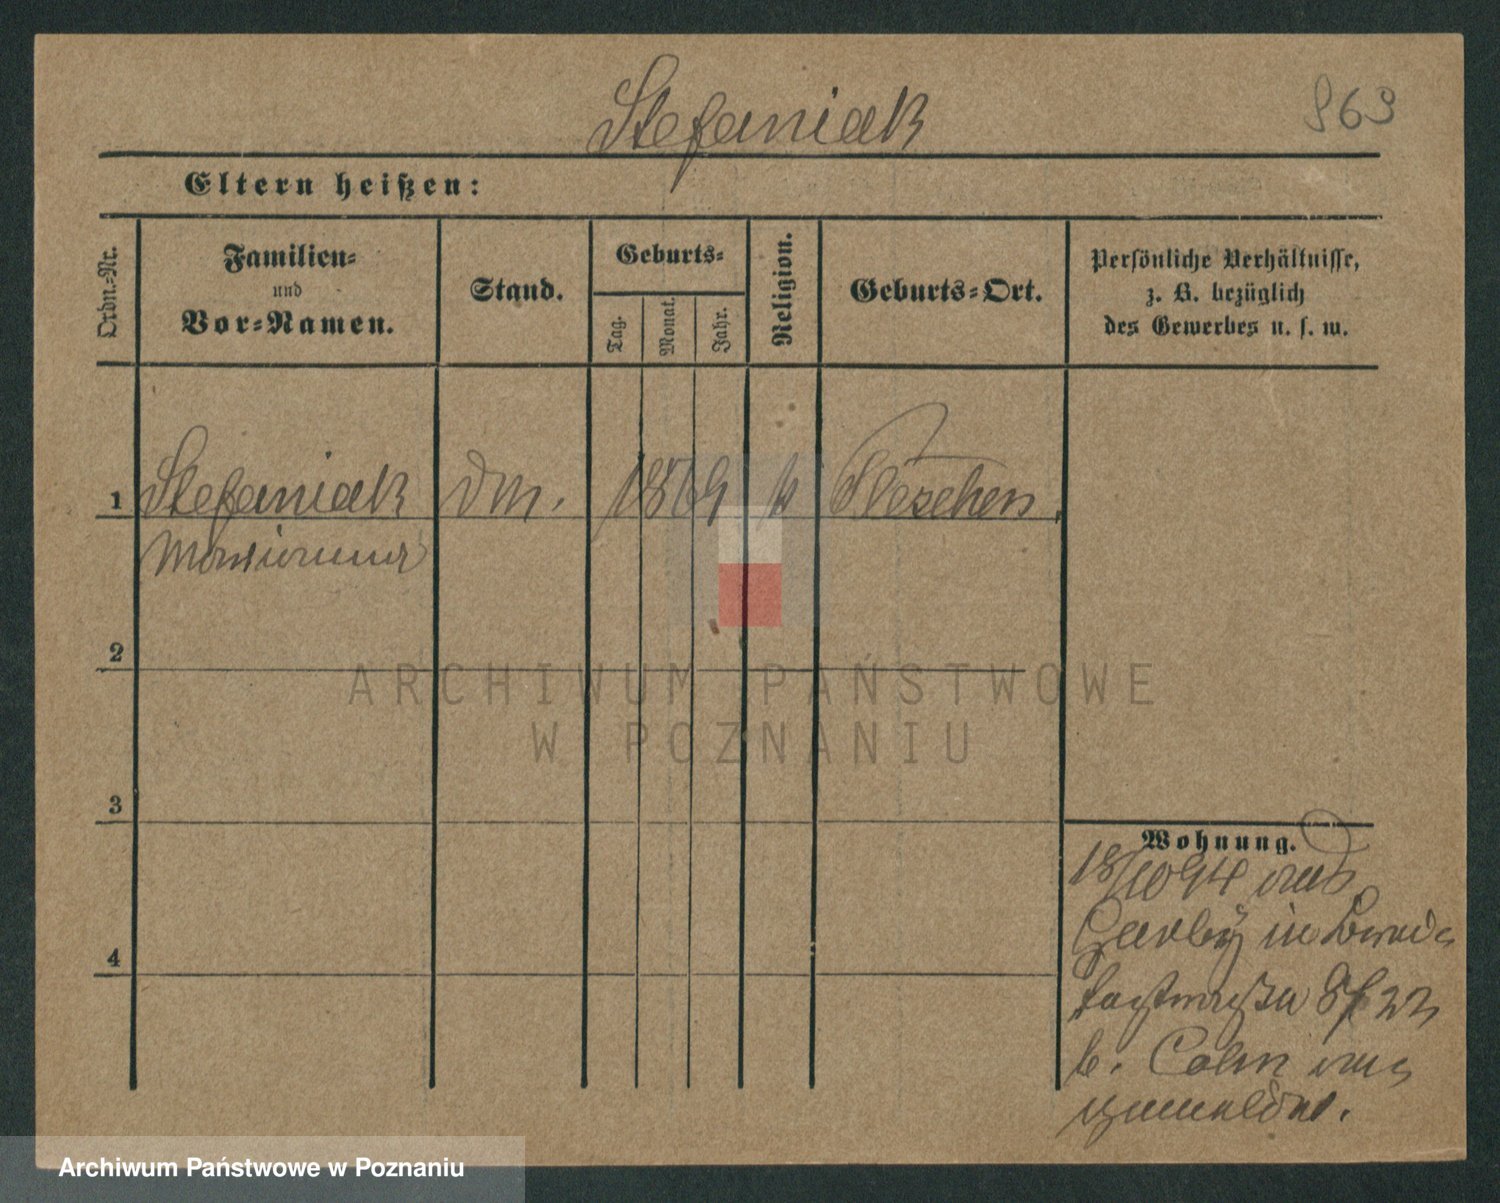 Stefaniak
963
Eltern heißen:
Ordn.-Nr.
Familien-
und
Vor-Namen.
Stand.
Geburts-
Tag.
Monat.
Jahr.
Religion.
Geburts-Ort.
Persönliche Verhältnisse,
z. B. bezüglich
des Gewerbes u. s. w.
1
Stefaniak
Marianna
Dm.
1869
k
Pleschen
2
ARCHIWUM PAŃSTWOWE
W POZNANIU
3
4
Wohnung.
18/10 94 aus
in
22
b. Cohn
Archiwum Państwowe w Poznaniu